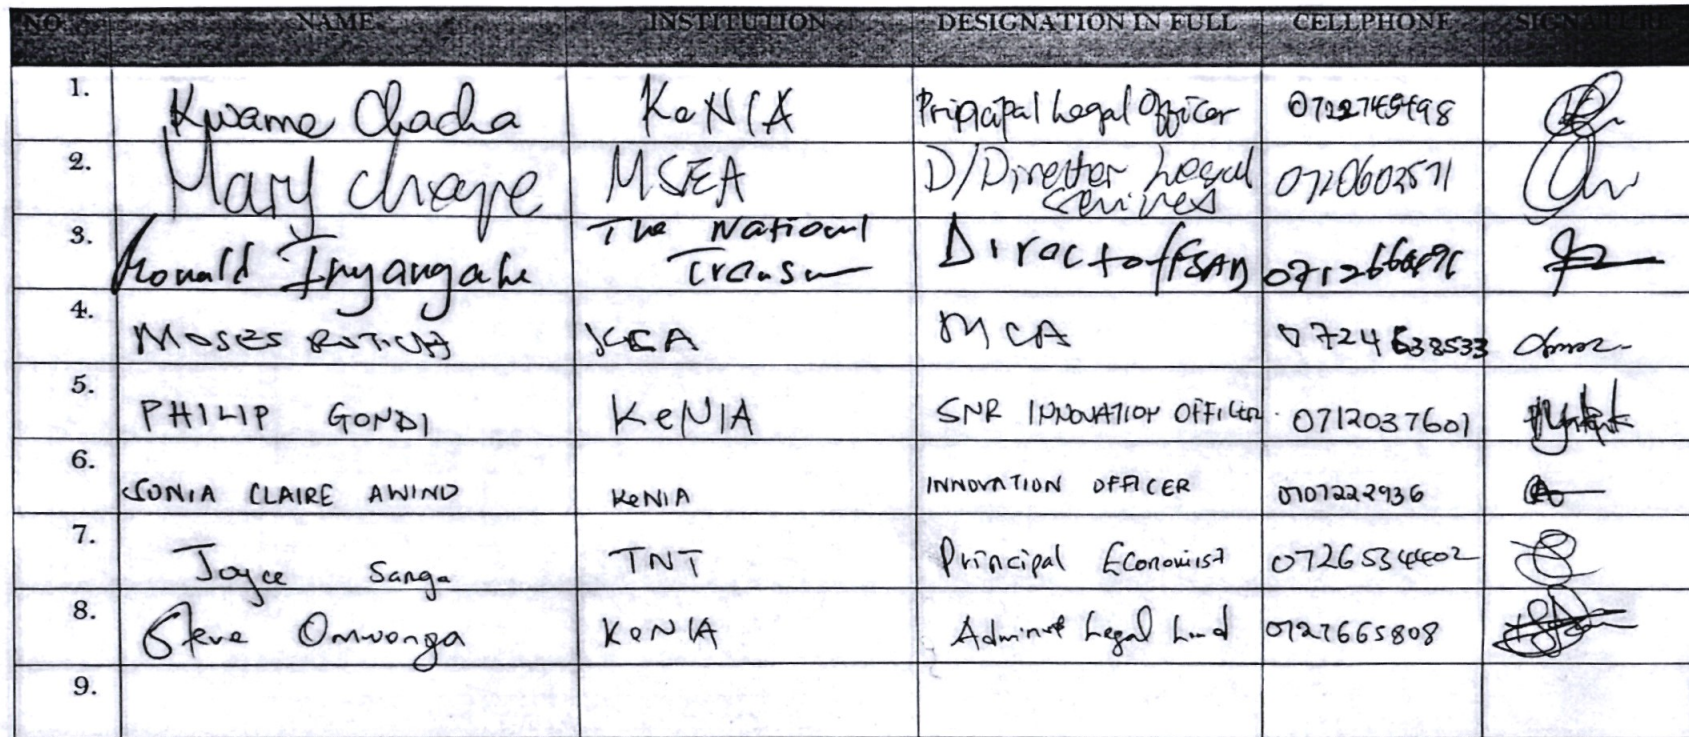 NO. NAME INSTITUTION DESIGNATION IN FULL CELLPHONE SIGNATURE
1. Kwame Chacha KeNIA Principal Legal Officer
2. Mary MSEA D/Director Legal Services 0720602571
3. Ronald The National Director
4. MOSES ROTICH KCA MCA
5. PHILIP GONDI KeNIA SNR INNOVATION OFFICER 0712037601
6. SONIA CLAIRE AWINO KeNIA INNOVATION OFFICER 0107222936
7. Joyce Sanga TNT Principal Economist 0726534402
8. Steve Omwonga KeNIA Legal 0727665808
9.